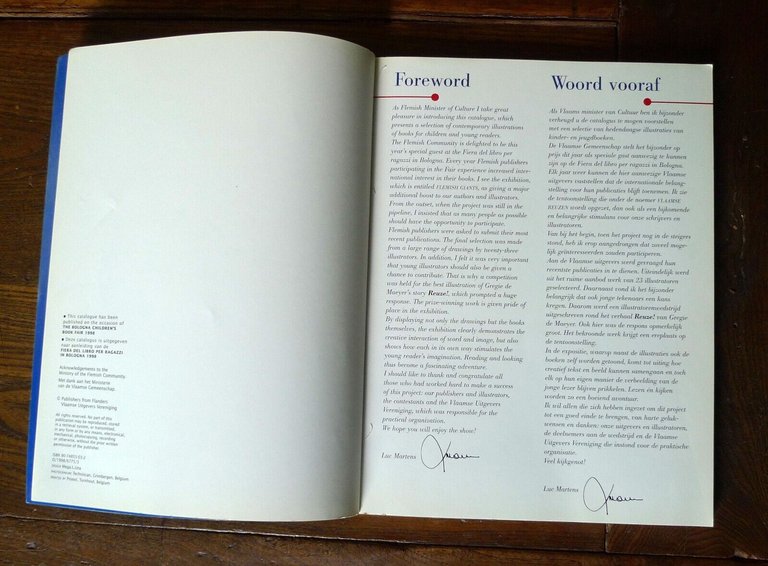 ● This catalogue has been
published on the occasion of
THE BOLOGNA CHILDREN'S
BOOK FAIR 1998
● Deze catalogus is uitgegeven
naar aanleiding van de
FIERA DEL LIBRO PER RAGAZZI
IN BOLOGNA 1998
Acknowledgements to the
Ministry of the Flemish Community.
Met dank aan het Ministerie
van de Vlaamse Gemeenschap.
© Publishers from Flanders
Vlaamse Uitgevers Vereniging
All rights reserved. No part of this
publication may be reproduced, stored
in a retrieval system, or transmitted,
in any form or by any means, electronical,
mechanical, photocopying, recording
or otherwise, without the prior written
permission of the publisher.
Foreword
As Flemish Minister of Culture I take great
pleasure in introducing this catalogue, which
presents a selection of contemporary illustrations
of books for children and young readers.
The Flemish Community is delighted to be this
year's special guest at the Fiera del libro per
ragazzi in Bologna. Every year Flemish publishers
participating in the Fair experience increased inter-
national interest in their books. I see the exhibition,
which is entitled FLEMISH GIANTS, as giving a major
additional boost to our authors and illustrators.
From the outset, when the project was still in the
pipeline, I insisted that as many people as possible
should have the opportunity to participate.
Flemish publishers were asked to submit their most
recent publications. The final selection was made
from a large range of drawings by twenty-three
illustrators. In addition, I felt it was very important
that young illustrators should also be given a
chance to contribute. That is why a competition
was held for the best illustration of Gregie de
Maeyer's story Reuze!, which prompted a huge
response. The prize-winning work is given pride of
place in the exhibition.
By displaying not only the drawings but the books
themselves, the exhibition clearly demonstrates the
creative interaction of word and image, but also
shows how each in its own way stimulates the
young reader's imagination. Reading and looking
thus become a fascinating adventure.
I should like to thank and congratulate all
those who had worked hard to make a success
of this project: our publishers and illustrators,
the contestants and the Vlaamse Uitgevers
Vereniging, which was responsible for the
practical organization.
We hope you will enjoy the show!
Luc Martens
Woord vooraf
Als Vlaams minister van Cultuur ben ik bijzonder
verheugd u de catalogus te mogen voorstellen
met een selectie van hedendaagse illustraties van
kinder- en jeugdboeken.
De Vlaamse Gemeenschap stelt het bijzonder op
prijs dit jaar als speciale gast aanwezig te kunnen
zijn op de Fiera del libro per ragazzi in Bologna.
Elk jaar weer kunnen de hier aanwezige Vlaamse
uitgevers vaststellen dat de internationale belang-
stelling voor hun publicaties blijft toenemen. Ik zie
de tentoonstelling die onder de noemer VLAAMSE
REUZEN wordt opgezet, dan ook als een bijkomende
en belangrijke stimulans voor onze schrijvers en
illustratoren.
Van bij het begin, toen het project nog in de steigers
stond, heb ik erop aangedrongen dat zoveel moge-
lijk geïnteresseerden zouden participeren.
Aan de Vlaamse uitgevers werd gevraagd hun
recentste publicaties in te dienen. Uiteindelijk werd
uit het ruime aanbod werk van 23 illustratoren
geselecteerd. Daarnaast vond ik het bijzonder
belangrijk dat ook jonge tekenaars een kans
kregen. Daarom werd een illustratorenwedstrijd
uitgeschreven rond het verhaal Reuze! van Gregie
de Maeyer. Ook hier was de respons opmerkelijk
groot. Het bekroonde werk krijgt een ereplaats op
de tentoonstelling.
In de expositie, waarop naast de illustraties ook de
boeken zelf worden getoond, komt tot uiting hoe
creatief tekst en beeld kunnen samengaan en toch
elk op hun eigen manier de verbeelding van de
jonge lezer blijven prikkelen. Lezen én kijken
worden zo een boeiend avontuur.
Ik wil allen die zich hebben ingezet om dit project
tot een goed einde te brengen, van harte geluk-
wensen en danken: onze uitgevers en illustratoren,
de deelnemers aan de wedstrijd en de Vlaamse
Uitgevers Vereniging die instond voor de praktische
organisatie.
Veel kijkgenot!
Luc Martens